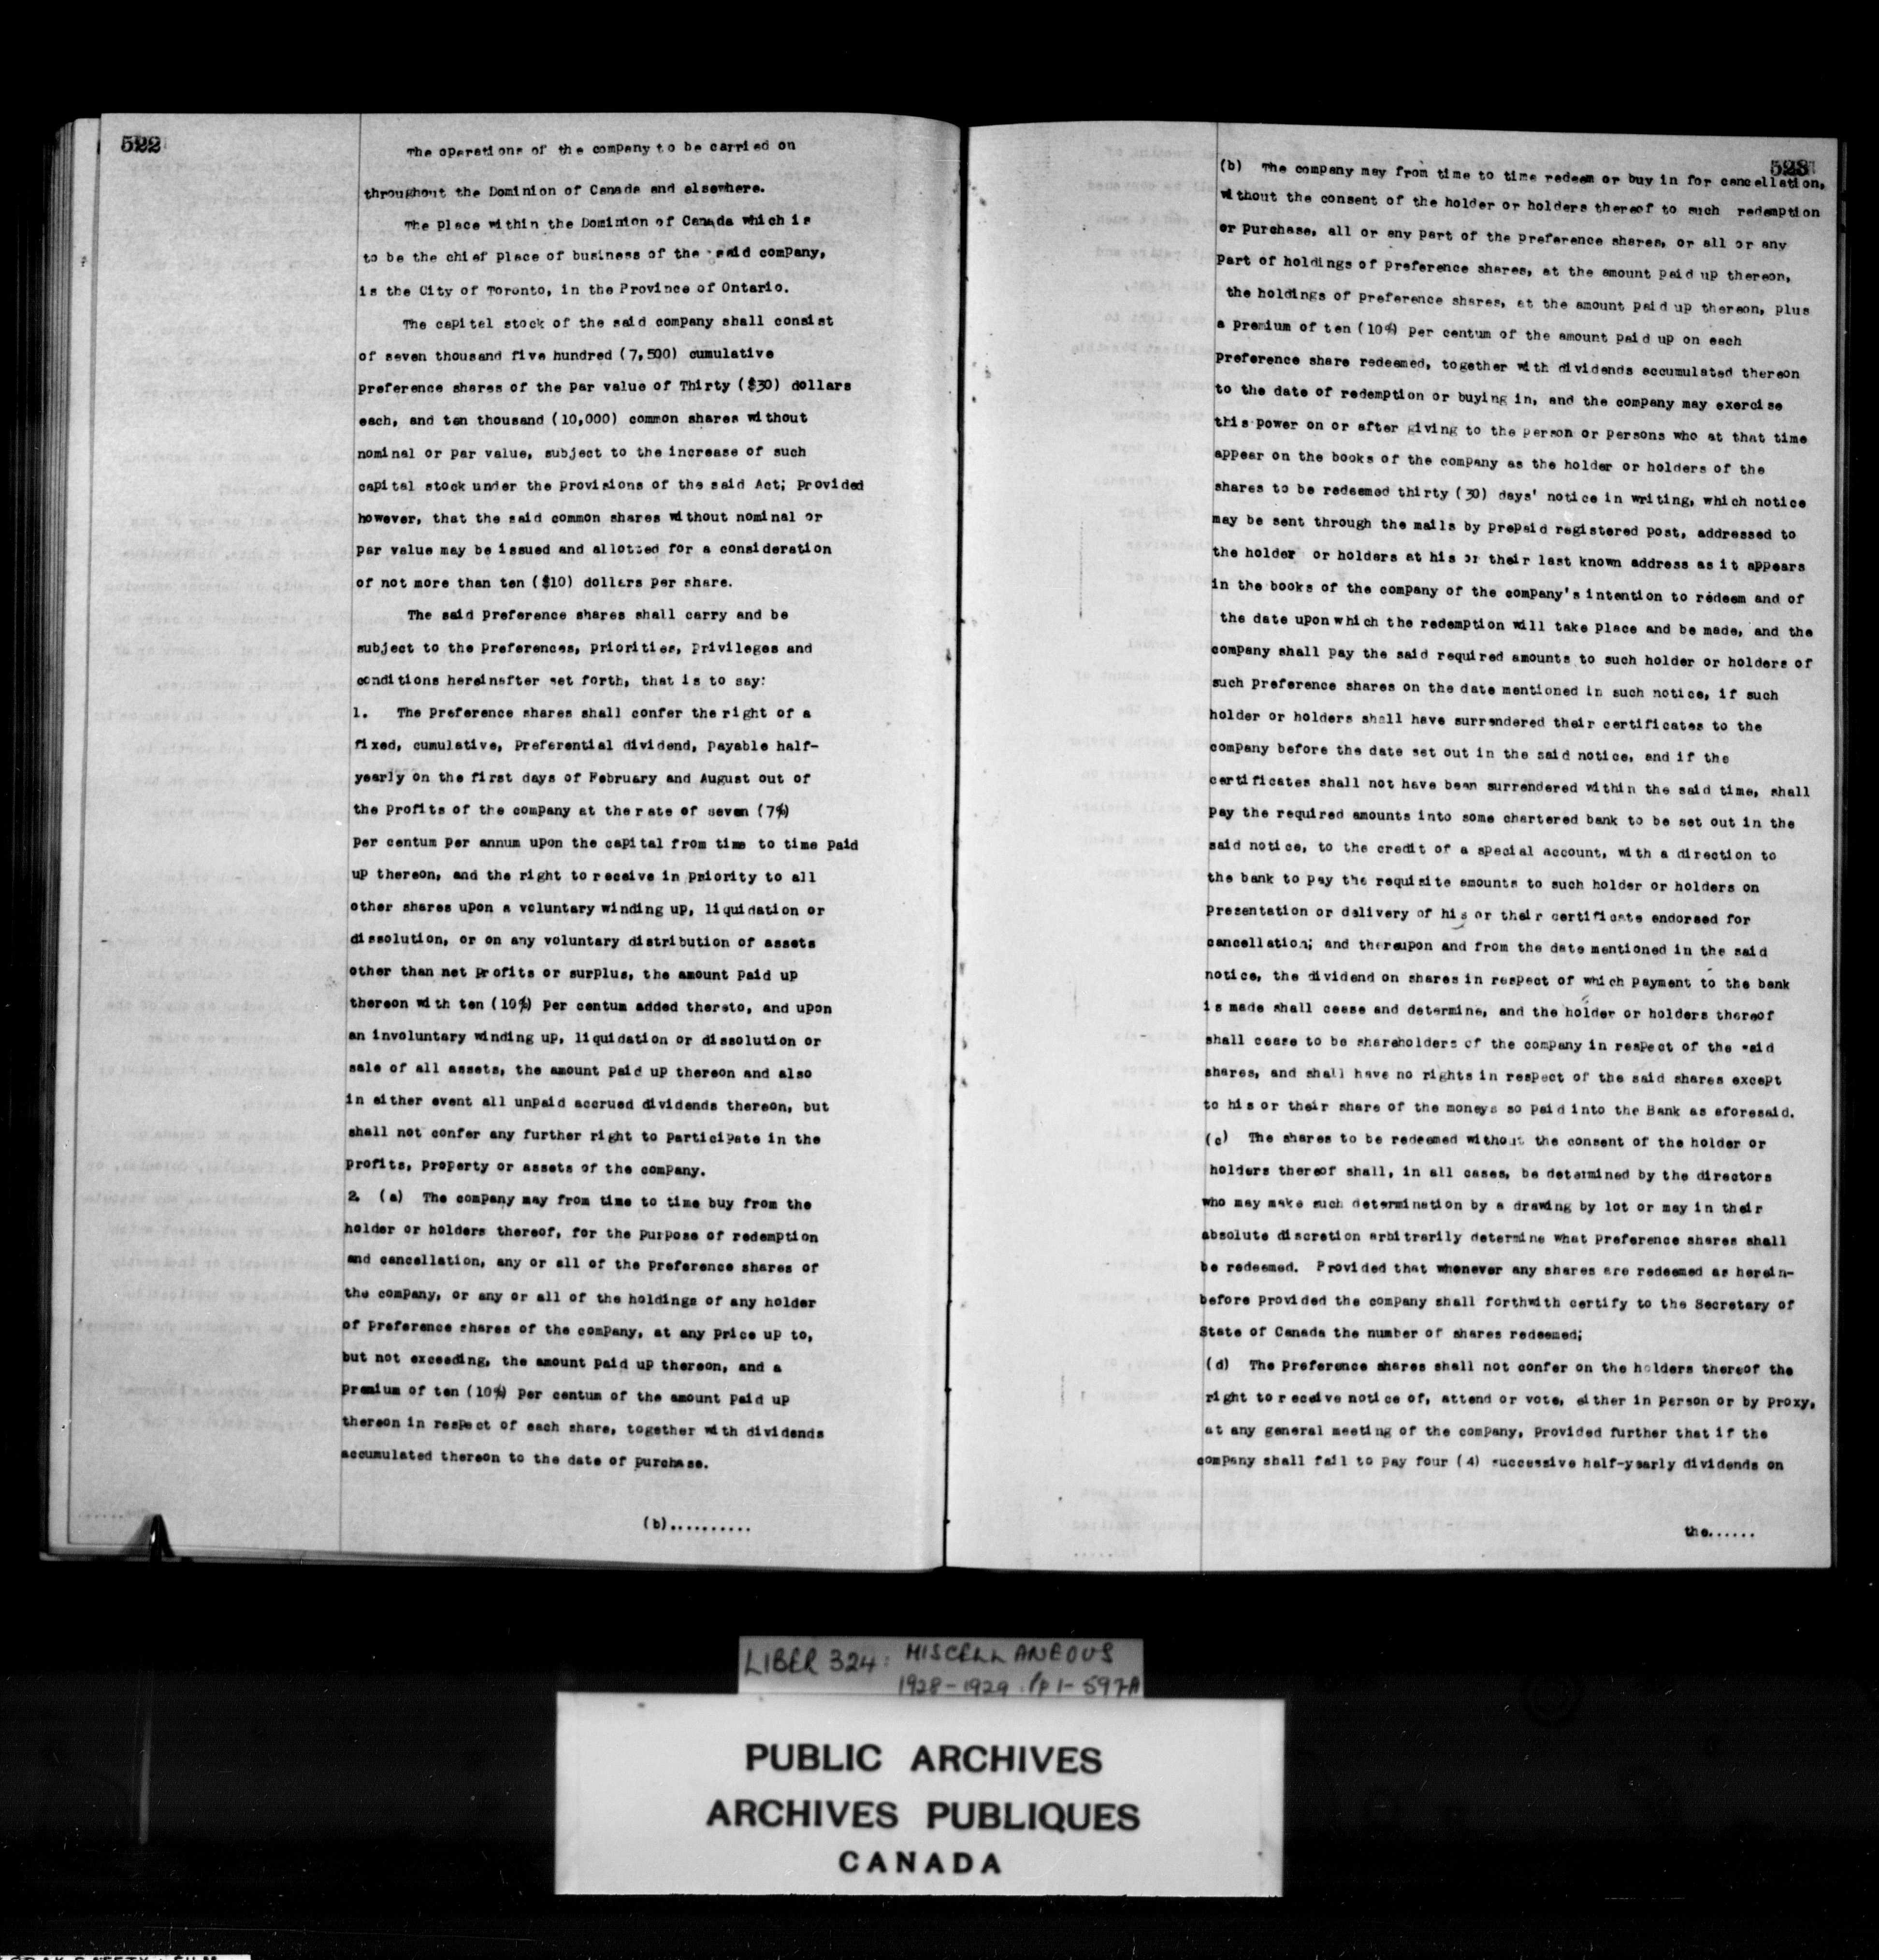 522
The operations of the company to be carried on
throughout the Dominion of Canada and elsewhere.
The place within the Dominion of Canada which is
to be the chief place of business of the said company,
is the City of Toronto, in the Province of Ontario.
The capital stock of the said company shall consist
of seven thousand five hundred (7,500) cumulative
preference shares of the par value of Thirty ($30) dollars
each, and ten thousand (10,000) common shares without
nominal or par value, subject to the increase of such
capital stock under the provisions of the said Act; Provided
however, that the said common shares without nominal or
par value may be issued and allotted for a consideration
of not more than ten ($10) dollars per share.
The said preference shares shall carry and be
subject to the preferences, priorities, privileges and
conditions hereinafter set forth, that is to say:
1. The preference shares shall confer the right of a
fixed, cumulative, preferential dividend, payable half-
yearly on the first days of February and August out of
the profits of the company at the rate of seven (7%)
per centum per annum upon the capital from time to time paid
up thereon, and the right to receive in priority to all
other shares upon a voluntary winding up, liquidation or
dissolution, or on any voluntary distribution of assets
other than net profits or surplus, the amount paid up
thereon with ten (10%) per centum added thereto, and upon
an involuntary winding up, liquidation or dissolution or
sale of all assets, the amount paid up thereon and also
in either event all unpaid accrued dividends thereon, but
shall not confer any further right to participate in the
profits, property or assets of the company.
2. (a) The company may from time to time buy from the
holder or holders thereof, for the purpose of redemption
and cancellation, any or all of the preference shares of
the company, or any or all of the holdings of any holder
of preference shares of the company, at any price up to,
but not exceeding, the amount paid up thereon, and a
premium of ten (10%) per centum of the amount paid up
thereon in respect of each share, together with dividends
accumulated thereon to the date of purchase.
(b)..........
523
(b) The company may from time to time redeem or buy in for cancellation,
without the consent of the holder or holders thereof to such redemption
or purchase, all or any part of the preference shares, or all or any
part of holdings of preference shares, at the amount paid up thereon,
the holdings of preference shares, at the amount paid up thereon, plus
a premium of ten (10%) per centum of the amount paid up on each
preference share redeemed, together with dividends accumulated thereon
to the date of redemption or buying in, and the company may exercise
this power on or after giving to the person or persons who at that time
appear on the books of the company as the holder or holders of the
shares to be redeemed thirty (30) days' notice in writing, which notice
may be sent through the mails by prepaid registered post, addressed to
the holder or holders at his or their last known address as it appears
in the books of the company of the company's intention to redeem and of
the date upon which the redemption will take place and be made, and the
company shall pay the said required amounts to such holder or holders of
such preference shares on the date mentioned in such notice, if such
holder or holders shall have surrendered their certificates to the
company before the date set out in the said notice, and if the
certificates shall not have been surrendered within the said time, shall
pay the required amounts into some chartered bank to be set out in the
said notice, to the credit of a special account, with a direction to
the bank to pay the requisite amounts to such holder or holders on
presentation or delivery of his or their certificate endorsed for
cancellation; and thereupon and from the date mentioned in the said
notice, the dividend on shares in respect of which payment to the bank
is made shall cease and determine, and the holder or holders thereof
shall cease to be shareholders of the company in respect of the said
shares, and shall have no rights in respect of the said shares except
to his or their share of the moneys so paid into the Bank as aforesaid.
(c) The shares to be redeemed without the consent of the holder or
holders thereof shall, in all cases, be determined by the directors
who may make such determination by a drawing by lot or may in their
absolute discretion arbitrarily determine what preference shares shall
be redeemed. Provided that whenever any shares are redeemed as herein-
before provided the company shall forthwith certify to the Secretary of
State of Canada the number of shares redeemed;
(d) The preference shares shall not confer on the holders thereof the
right to receive notice of, attend or vote, either in person or by proxy,
at any general meeting of the company, Provided further that if the
company shall fail to pay four (4) successive half-yearly dividends on
the......
LIBER 324: MISCELLANEOUS
1928-1929. pp 1-597A
PUBLIC ARCHIVES
ARCHIVES PUBLIQUES
CANADA